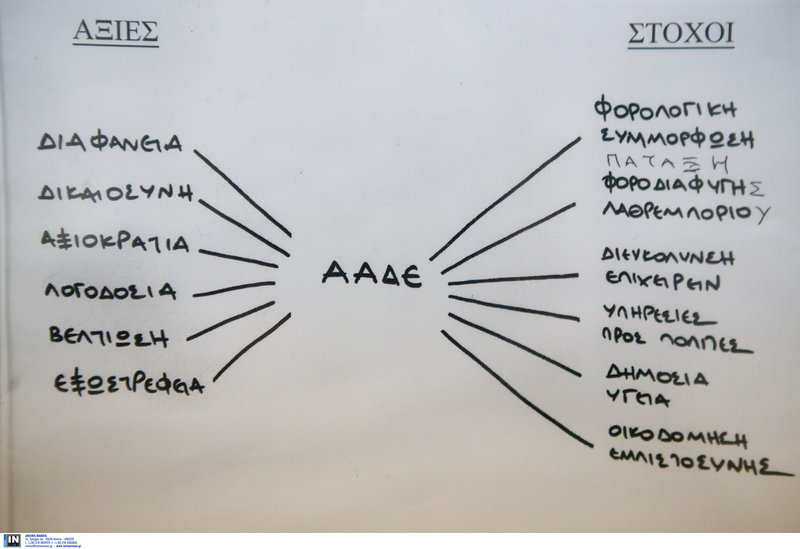 ΑΞΙΕΣ
ΔΙΑΦΑΝΕΙΑ
ΔΙΚΑΙΟΣΥΝΗ
ΑΞΙΟΚΡΑΤΙΑ
ΛΟΓΟΔΟΣΙΑ
ΒΕΛΤΙΩΣΗ
ΕΞΩΣΤΡΕΦΕΙΑ
ΑΑΔΕ
ΣΤΟΧΟΙ
ΦΟΡΟΛΟΓΙΚΗ
ΣΥΜΜΟΡΦΩΣΗ
ΠΑΤΑΞΗ
ΦΟΡΟΔΙΑΦΥΓΗΣ
ΛΑΘΡΕΜΠΟΡΙΟΥ
ΔΙΕΥΚΟΛΥΝΣΗ
ΕΠΙΧΕΙΡΕΙΝ
ΥΠΗΡΕΣΙΕΣ
ΠΡΟΣ ΠΟΛΙΤΕΣ
ΔΗΜΟΣΙΑ
ΥΓΕΙΑ
ΟΙΚΟΔΟΜΗΣΗ
ΕΜΠΙΣΤΟΣΥΝΗΣ
IN